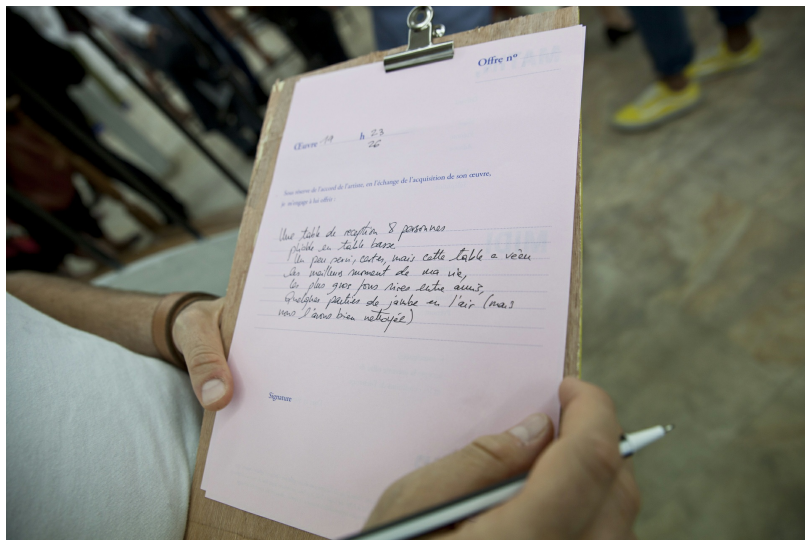 Offre n°
Œuvre 19 h 23
26
Sous réserve de l'accord de l'artiste, en l'échange de l'acquisition de son œuvre,
je m'engage à lui offrir :
Une table de réception 8 personnes
pliable en table basse
Un peu servi, certes, mais cette table a vécu
les meilleurs moment de ma vie,
les plus gros fous rires entre amis,
quelques parties de jambe en l'air (mais
nous l'avons bien nettoyée)
Signature